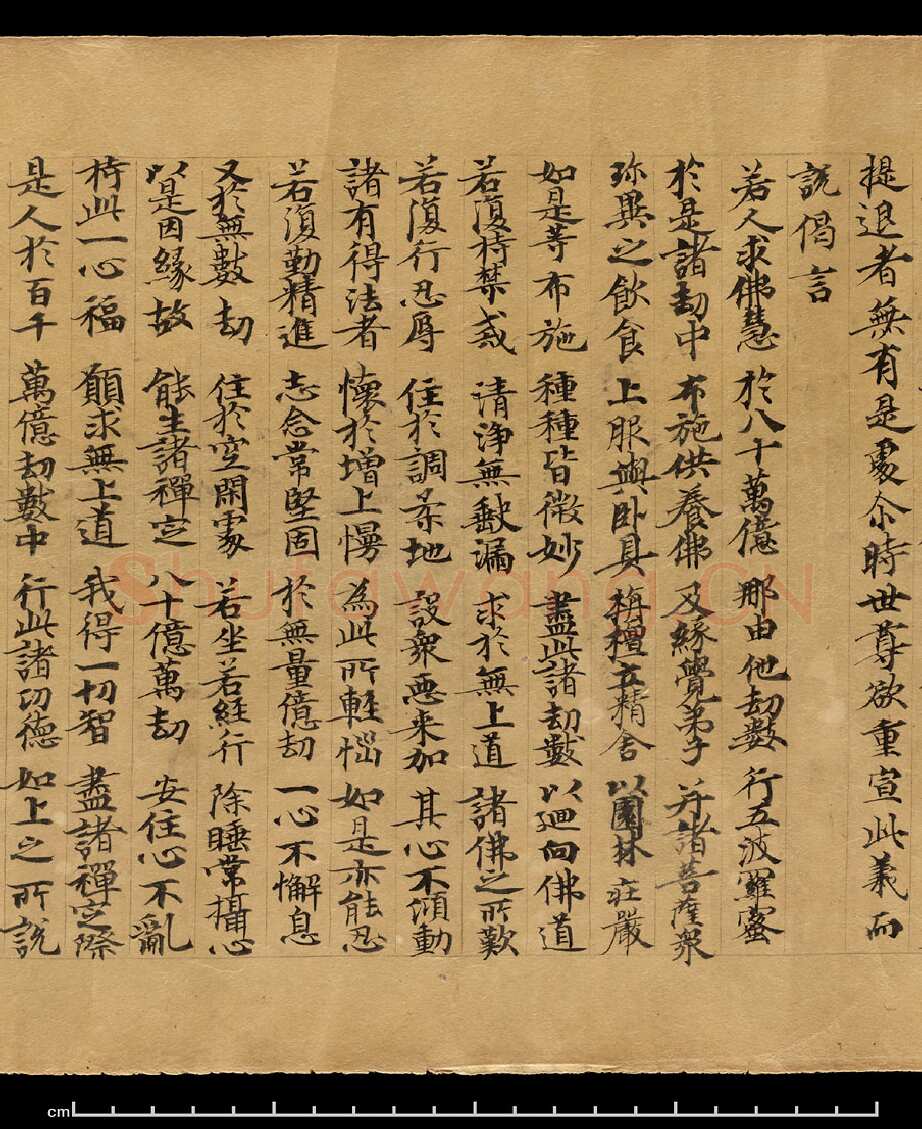 提退者無有是處尒時世尊欲重宣此義而
說偈言
若人求佛慧 於八十萬億 那由他劫數 行五波羅蜜
於是諸劫中 布施供養佛 及緣覺弟子 并諸菩薩衆
珎異之飲食 上服與卧具 栴檀立精舍 以園林莊嚴
如是等布施 種種皆微妙 盡此諸劫數 以迴向佛道
若復持禁戒 清淨無缺漏 求於無上道 諸佛之所歎
若復行忍辱 住於調柔地 設衆惡来加 其心不傾動
諸有得法者 懷於增上慢 為此所輕惱 如是亦能忍
若復勤精進 志念常堅固 於無量億劫 一心不懈息
又於無數劫 住於空閑處 若坐若經行 除睡常攝心
以是因緣故 能生諸禪定 八十億萬劫 安住心不亂
持此一心福 願求無上道 我得一切智 盡諸禪定際
是人於百千 萬億劫數中 行此諸功德 如上之所說
Shufawang.CN
cm